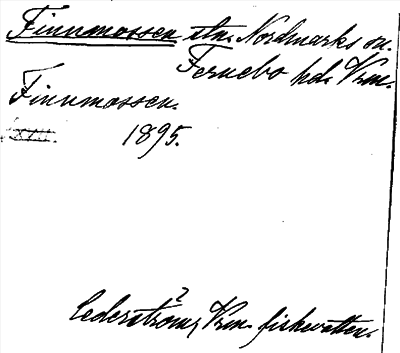 Finnmossen st:n. Nordmarks sn.
Fernebo hd. Vrm.
Finnmossen.
1895.
Cederström, Vrm. fiskevatten.